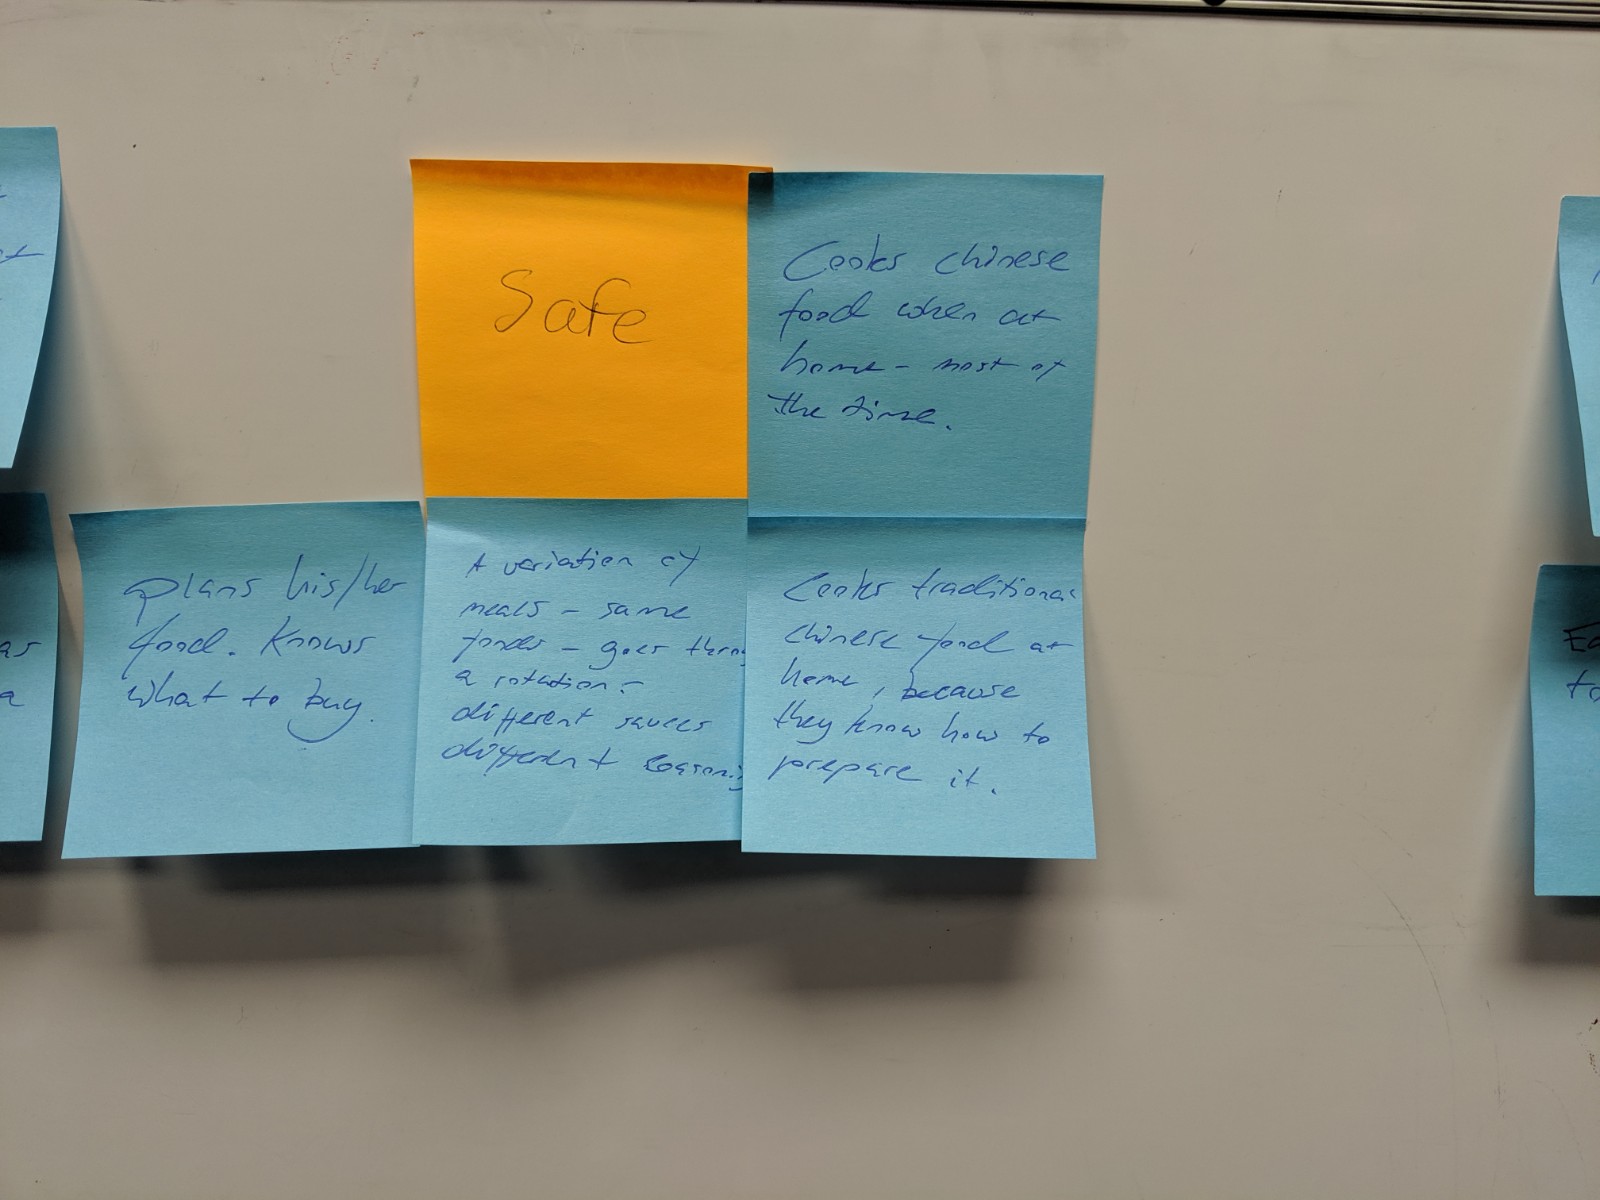 Safe
Cooks chinese
food when at
home - most of
the time.
plans his/her
food. Knows
what to buy.
A variation of
meals - same
foods - goes
a rotation -
different sauces
different
Cooks traditional
chinese food at
home, because
they know how to
prepare it.